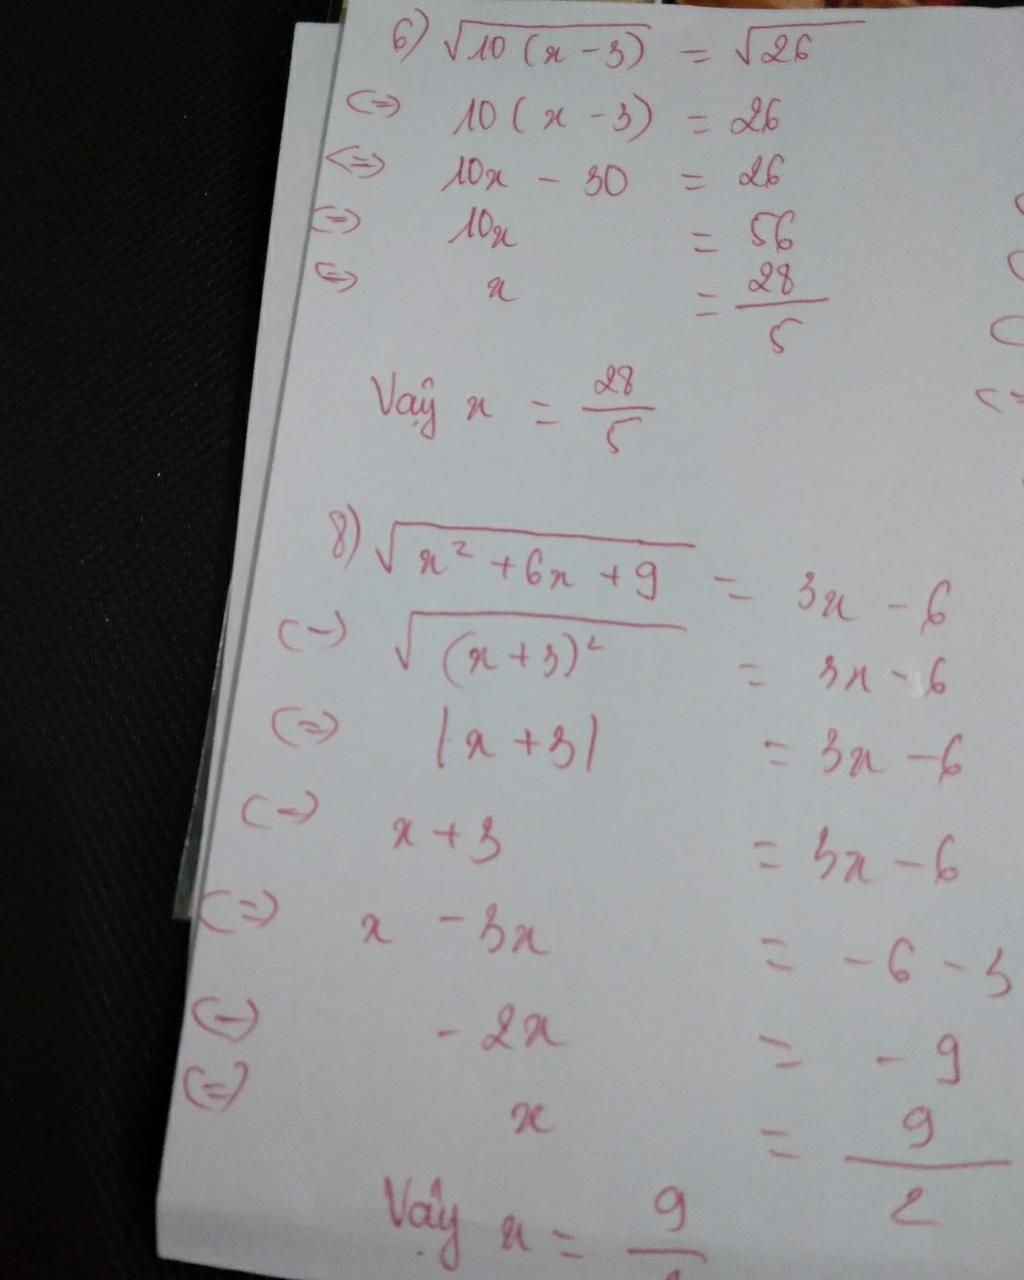 6) √10(x - 3) = √26
<=> 10(x - 3) = 26
<=> 10x - 30 = 26
<=> 10x = 56
<=> x = 28/5
Vậy x = 28/5
8) √x² + 6x + 9 = 3x - 6
<=> √(x + 3)² = 3x - 6
<=> |x + 3| = 3x - 6
<=> x + 3 = 3x - 6
<=> x - 3x = -6 - 3
<=> -2x = -9
<=> x = 9/2
Vậy x = 9